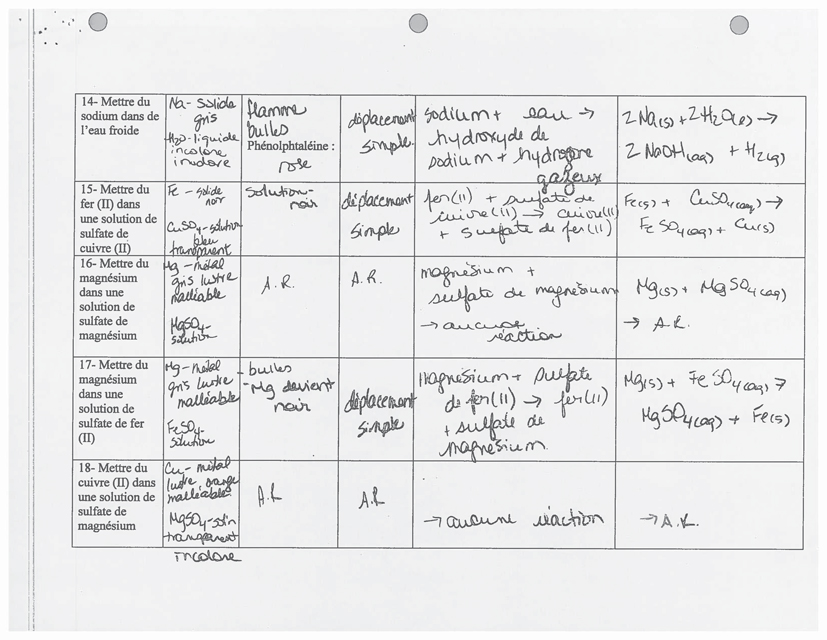 14- Mettre du
sodium dans de
l'eau froide
Na- solide
gris
H2O-liquide
incolore
inodore
flamme
bulles
Phénolphtaléine :
rose
déplacement
simple
sodium + eau →
hydroxyde de
sodium + hydrogène
gazeux
2Na(s) + 2H2O(l) →
2 NaOH(aq) + H2(g)
15- Mettre du
fer (II) dans
une solution de
sulfate de
cuivre (II)
Fe - solide
noir
CuSO4-solution
bleu
transparent
solution-
noir
déplacement
simple
fer(II) + sulfate de
cuivre(II) → cuivre(II)
+ sulfate de fer(II)
Fe(s) + CuSO4(aq) →
FeSO4(aq) + Cu(s)
16- Mettre du
magnésium
dans une
solution de
sulfate de
magnésium
Mg - métal
gris lustre
malléable
MgSO4-
solution
A.R.
A.R.
magnésium +
sulfate de magnésium
→ aucune
réaction
Mg(s) + MgSO4(aq)
→ A.R.
17- Mettre du
magnésium
dans une
solution de
sulfate de fer
(II)
Mg-métal
gris lustre
malléable
FeSO4-
solution
- bulles
- Mg devient
noir
déplacement
simple
Magnésium + sulfate
de fer(II) → fer(II)
+ sulfate de
magnésium
Mg(s) + FeSO4(aq) →
MgSO4(aq) + Fe(s)
18- Mettre du
cuivre (II) dans
une solution de
sulfate de
magnésium
Cu- métal
lustre orange
malléable
MgSO4-soltn
transparent
incolore
A.R
A.R
→ aucune réaction
→ A.R.